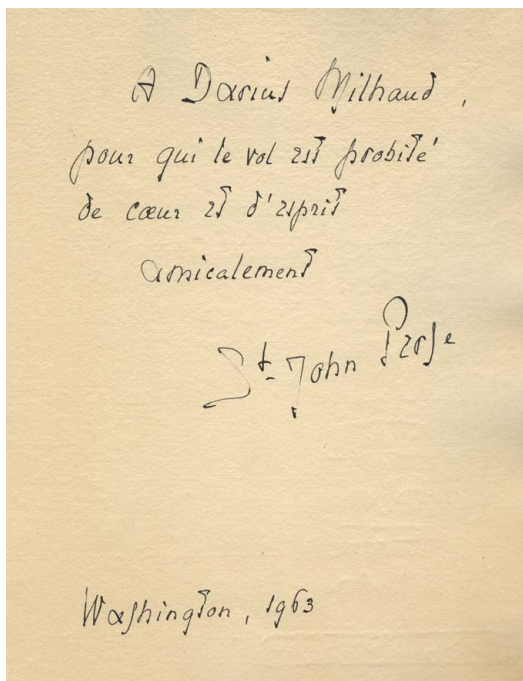 A Darius Milhaud,
pour qui le vol est probité
de cœur et d'esprit
amicalement
St-John Perse
Washington, 1963